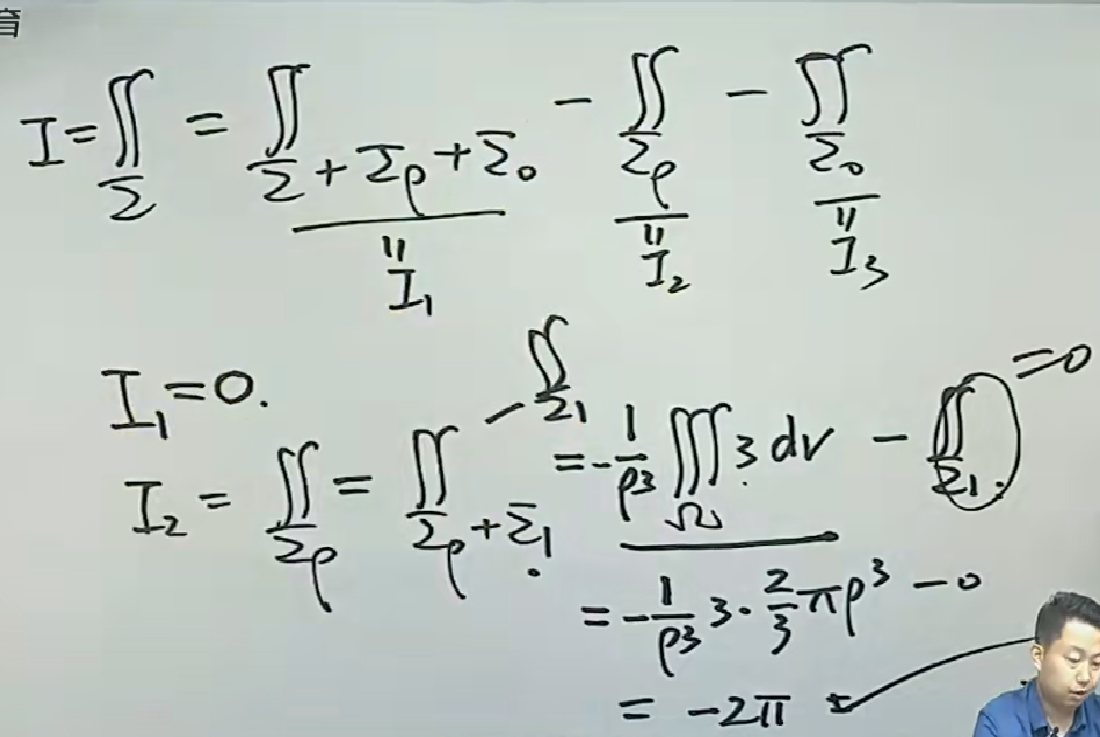 育
I = ∬_Σ = ∬_{Σ+Σρ+Σ₀} − ∬_{Σρ} − ∬_{Σ₀}
" " "
I₁ I₂ I₃
I₁ = 0.
I₂ = ∬_{Σρ} = ∬_{Σρ+Σ₁} − ∬_{Σ₁} = −1/ρ³ ∭_Ω 3 dv − ∬_{Σ₁} = 0
= −1/ρ³ 3 · 2/3 πρ³ − 0
= −2π